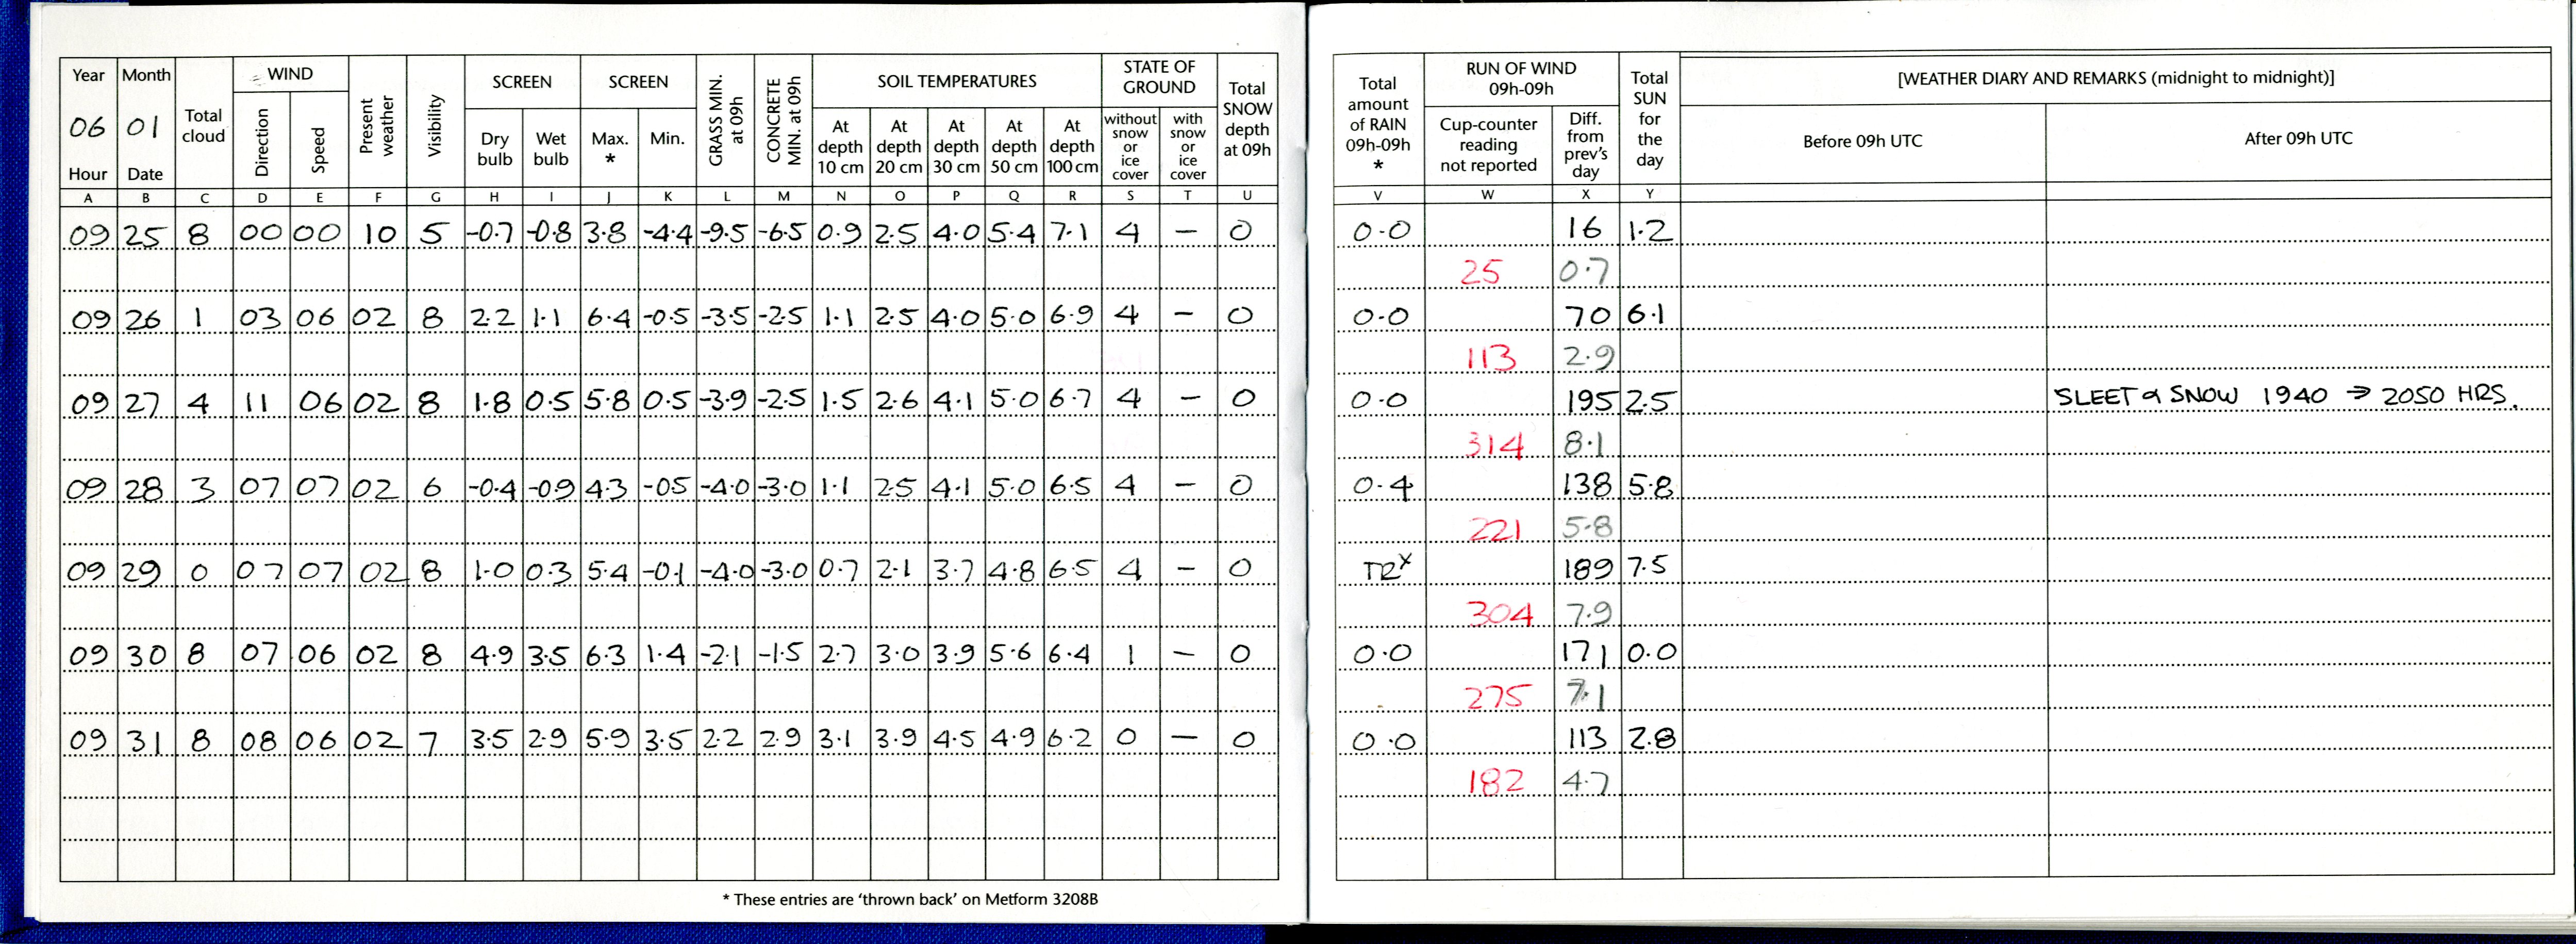 Year Month Total cloud WIND Present weather Visibility SCREEN SCREEN GRASS MIN. at 09h CONCRETE MIN. at 09h SOIL TEMPERATURES STATE OF GROUND Total SNOW depth at 09h Total amount of RAIN 09h-09h * RUN OF WIND 09h-09h Total SUN for the day [WEATHER DIARY AND REMARKS (midnight to midnight)]
06 01 Direction Speed Dry bulb Wet bulb Max. * Min. At depth 10 cm At depth 20 cm At depth 30 cm At depth 50 cm At depth 100 cm without snow or ice cover with snow or ice cover Cup-counter reading not reported Diff. from prev's day Before 09h UTC After 09h UTC
Hour Date
A B C D E F G H I J K L M N O P Q R S T U V W X Y
09 25 8 00 00 10 5 -0.7 -0.8 3.8 -4.4 -9.5 -6.5 0.9 2.5 4.0 5.4 7.1 4 — 0 0.0 16 1.2
25 0.7
09 26 1 03 06 02 8 2.2 1.1 6.4 -0.5 -3.5 -2.5 1.1 2.5 4.0 5.0 6.9 4 — 0 0.0 70 6.1
113 2.9
09 27 4 11 06 02 8 1.8 0.5 5.8 0.5 -3.9 -2.5 1.5 2.6 4.1 5.0 6.7 4 — 0 0.0 195 2.5 SLEET & SNOW 1940 → 2050 HRS.
314 8.1
09 28 3 07 07 02 6 -0.4 -0.9 4.3 -0.5 -4.0 -3.0 1.1 2.5 4.1 5.0 6.5 4 — 0 0.4 138 5.8
221 5.8
09 29 0 07 07 02 8 1.0 0.3 5.4 -0.1 -4.0 -3.0 0.7 2.1 3.7 4.8 6.5 4 — 0 TR* 189 7.5
304 7.9
09 30 8 07 06 02 8 4.9 3.5 6.3 1.4 -2.1 -1.5 2.7 3.0 3.9 5.6 6.4 1 — 0 0.0 171 0.0
275 7.1
09 31 8 08 06 02 7 3.5 2.9 5.9 3.5 2.2 2.9 3.1 3.9 4.5 4.9 6.2 0 — 0 0.0 113 2.8
182 4.7
* These entries are 'thrown back' on Metform 3208B